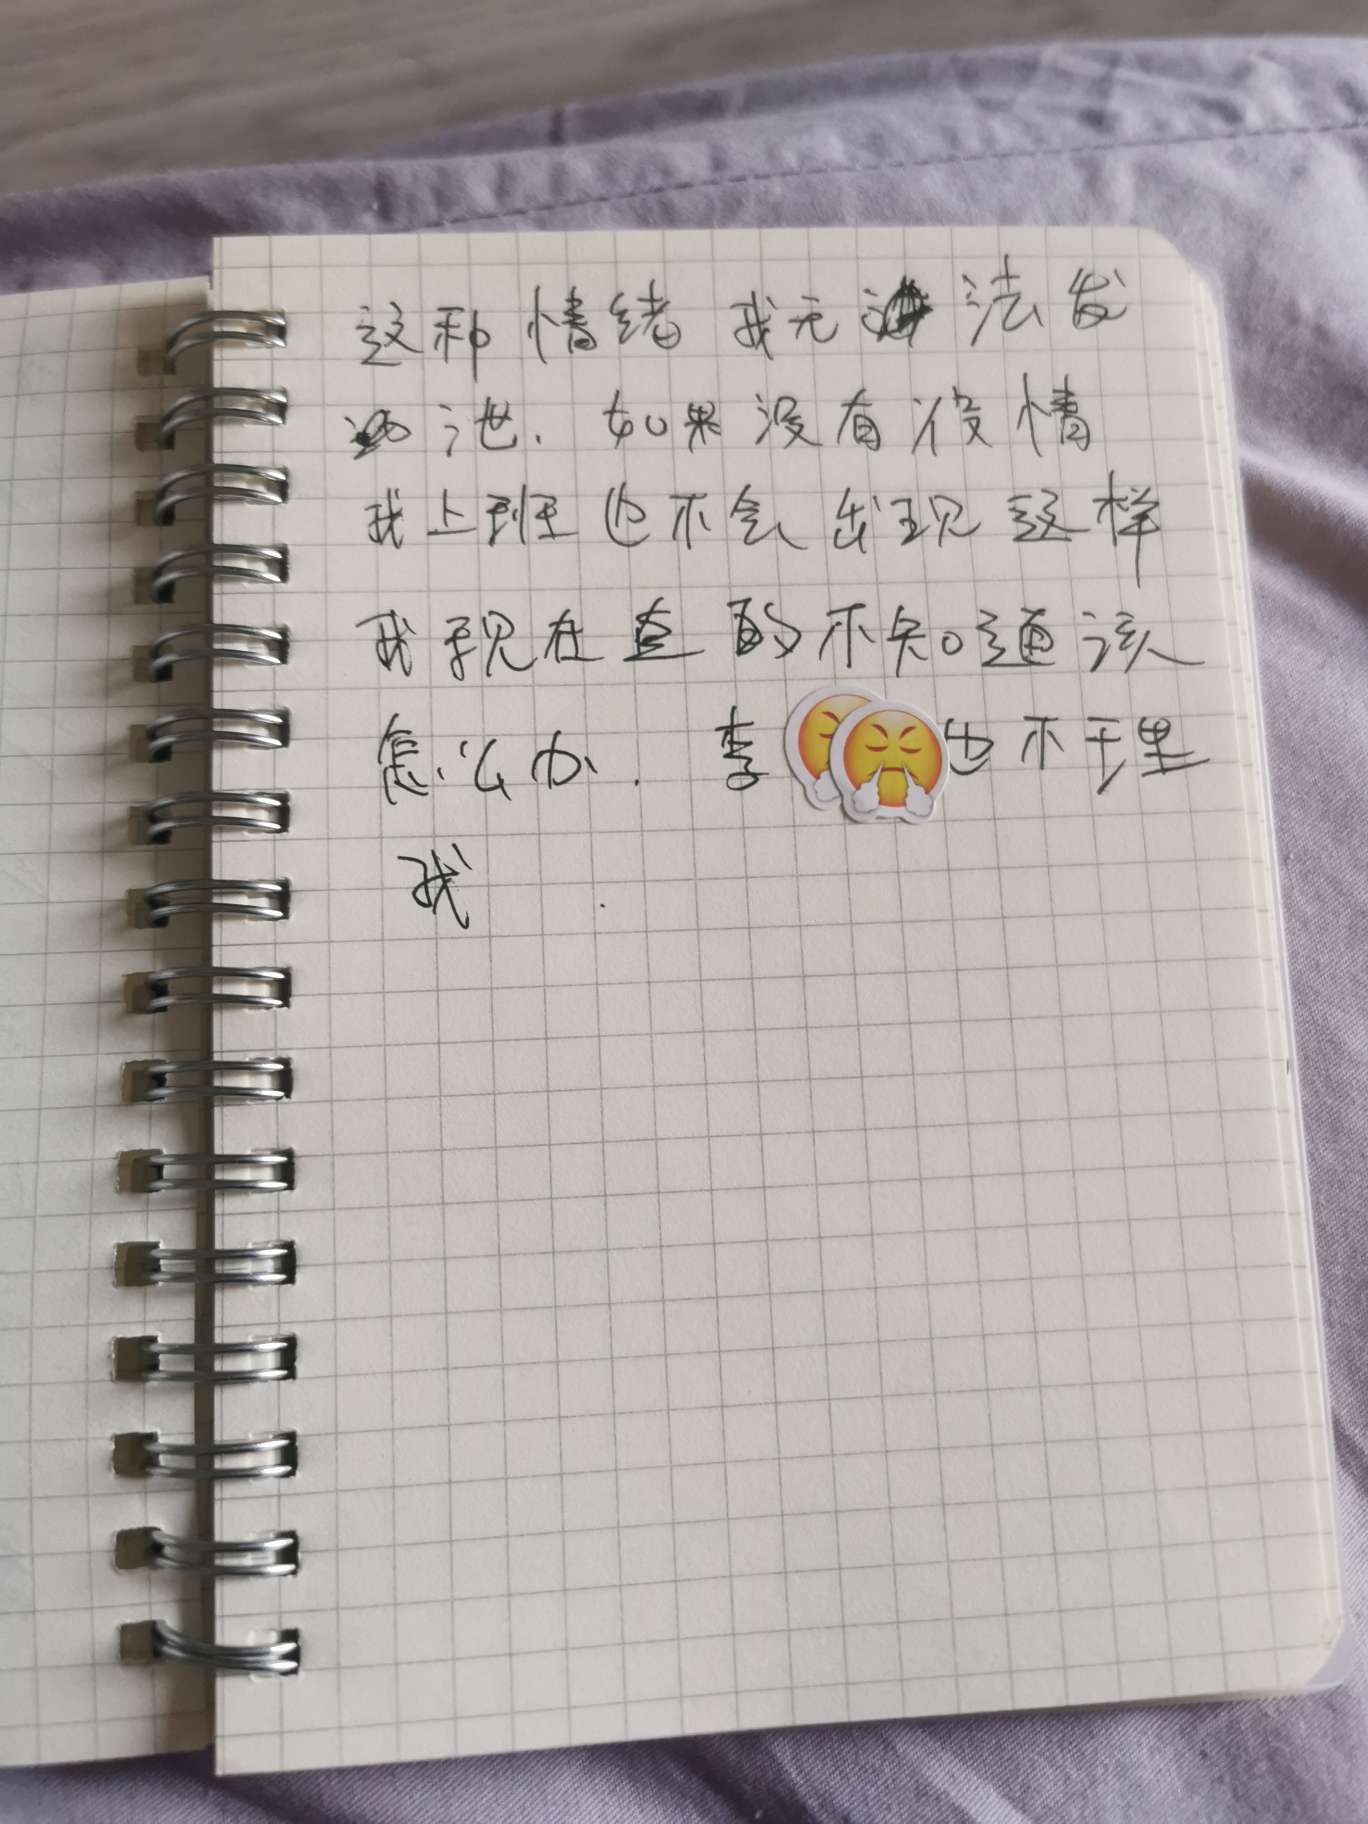 这种情绪 我无法发
泄. 如果没有疫情
我上班也不会出现这样
我现在真的不知道该
怎么办. 李 也不理
我.